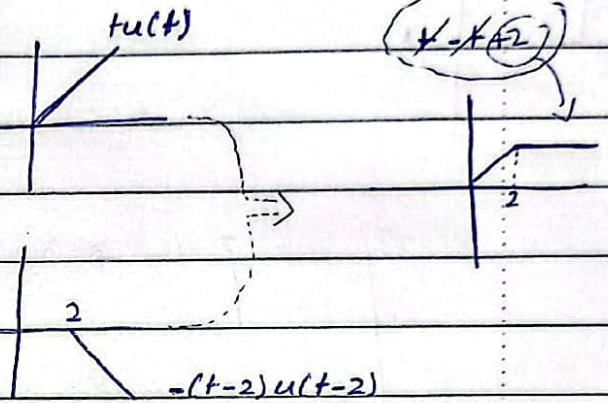 tu(t)
t - t + 2
2
2
-(t-2)u(t-2)